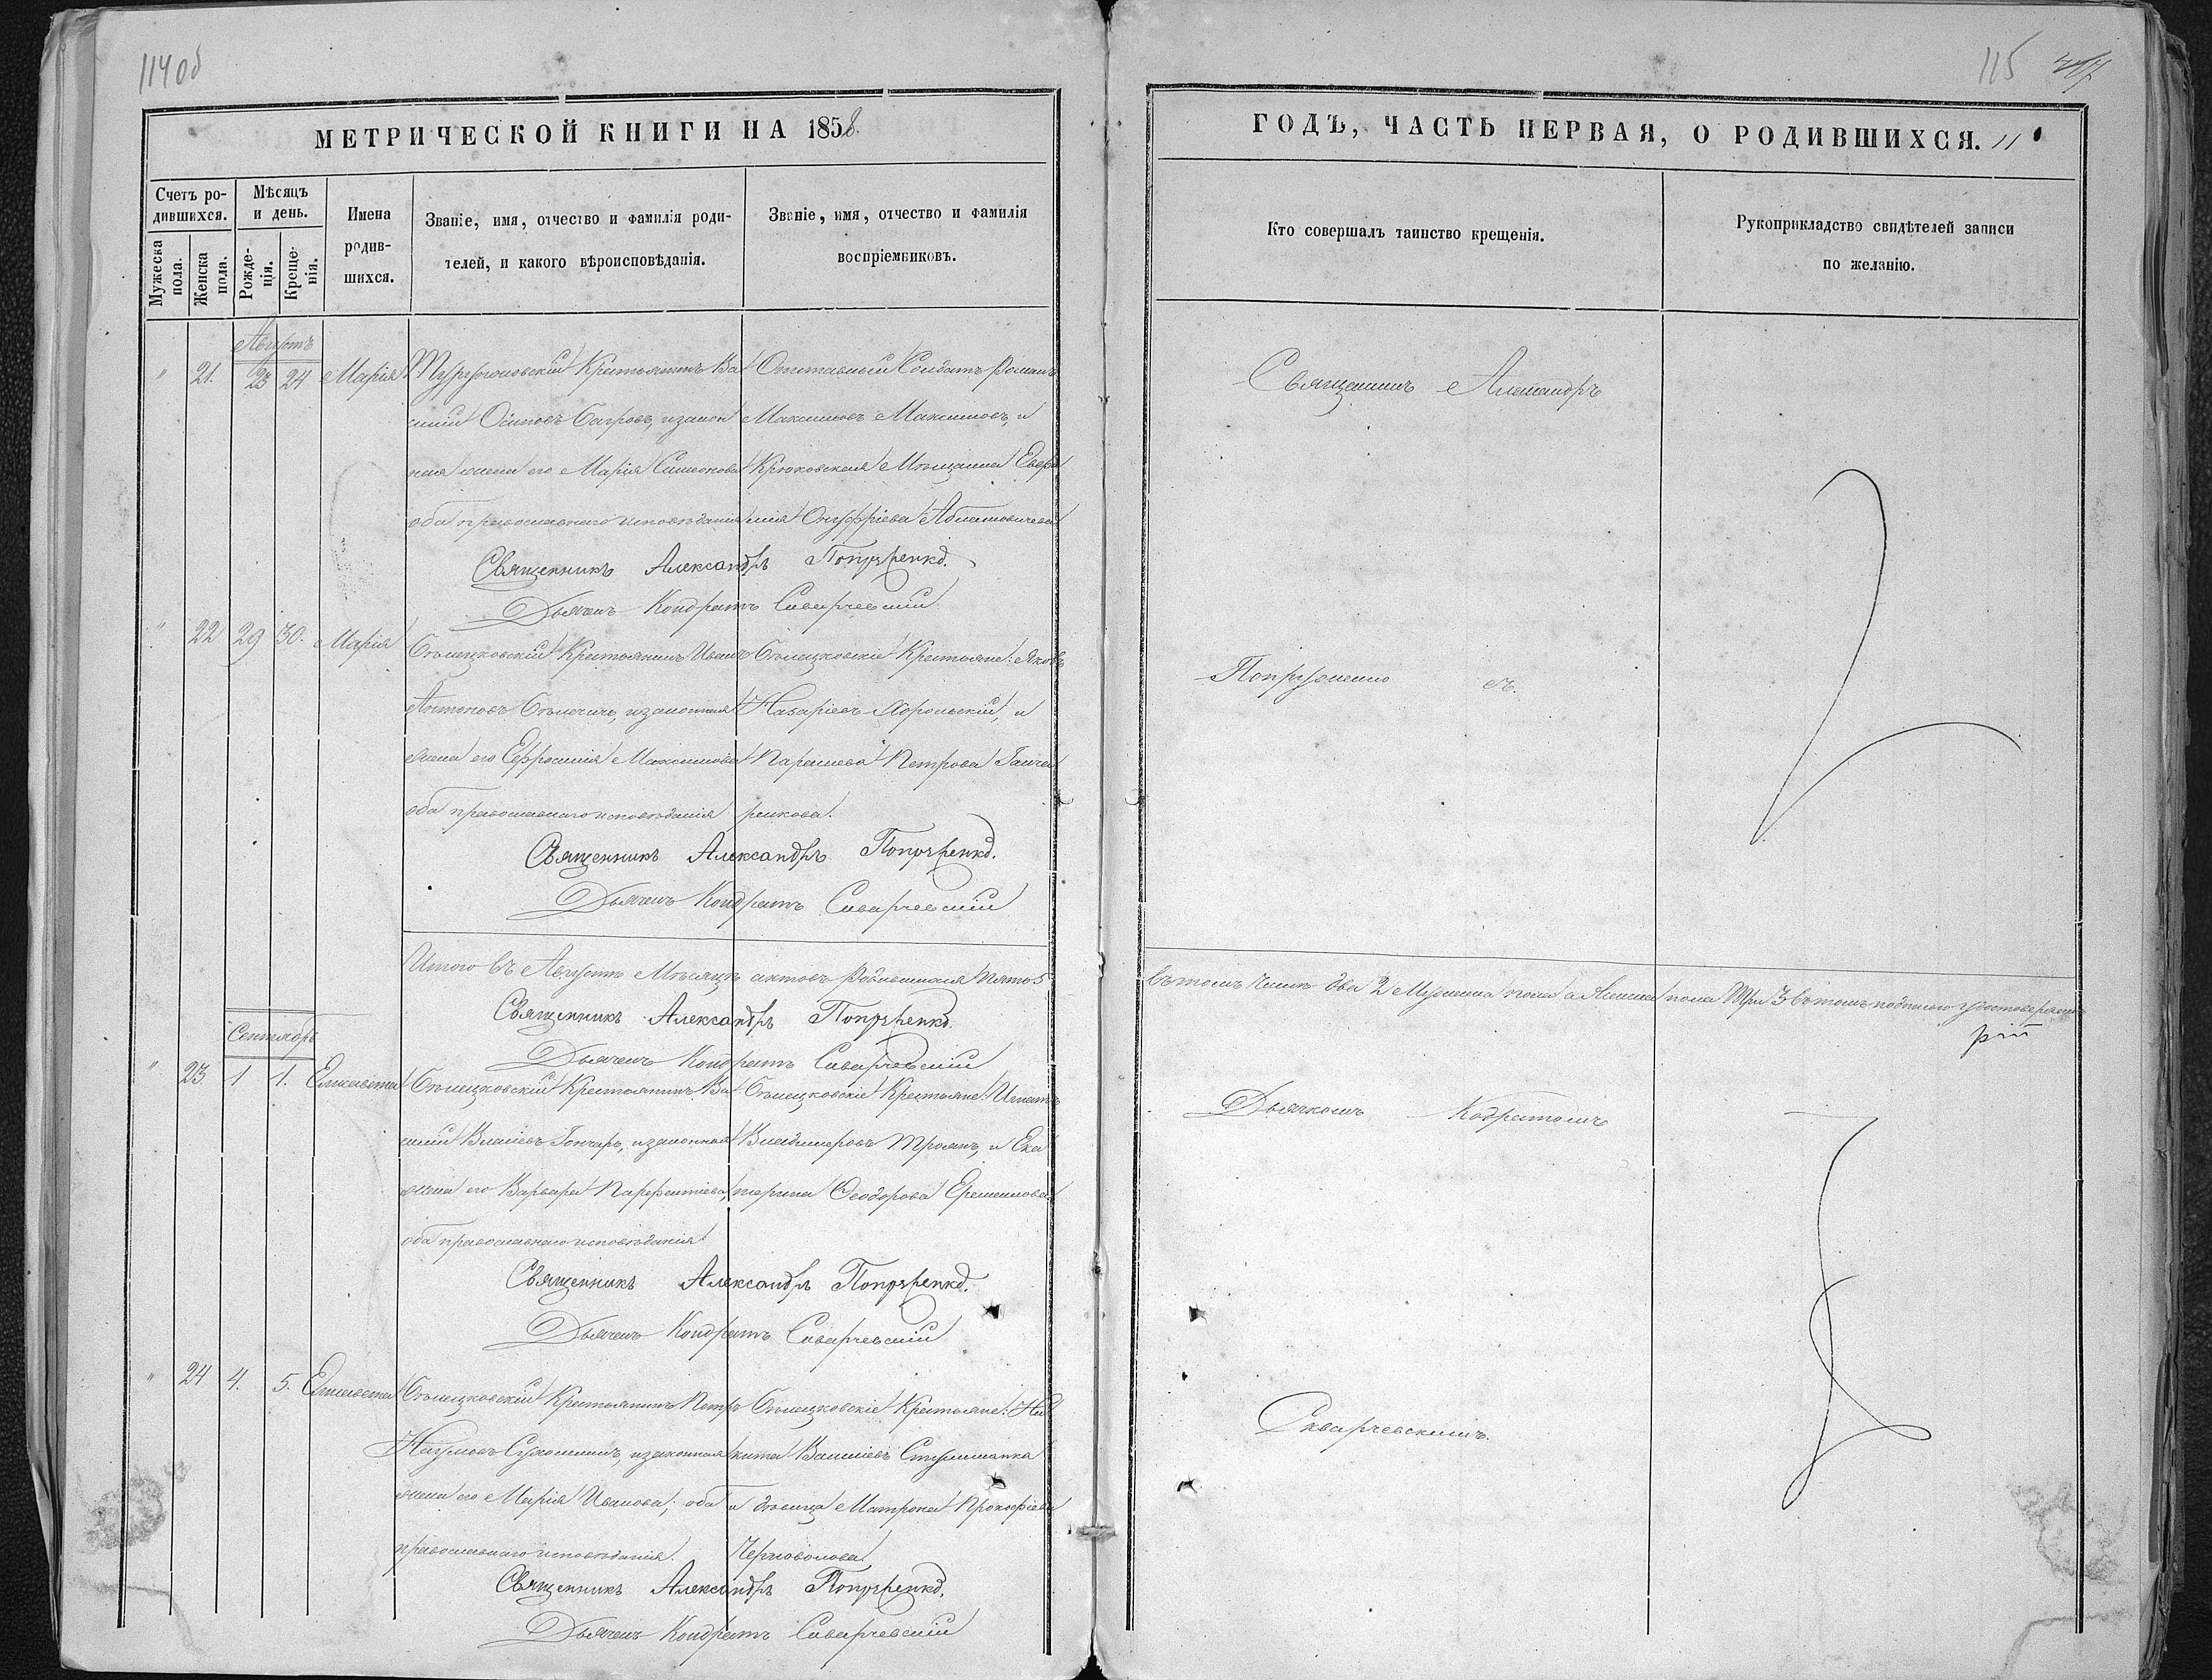 114 об
115
МЕТРИЧЕСКОЙ КНИГИ НА 1858.
ГОДЪ, ЧАСТЬ ПЕРВАЯ, О РОДИВШИХСЯ. 11
Счетъ родившихся.
Мужеска пола.
Женска пола.
Мѣсяцъ и день.
Рожденія.
Крещенія.
Имена родившихся.
Званіе, имя, отчество и фамилія родителей, и какого вѣроисповѣданія.
Званіе, имя, отчество и фамилія воспріемниковъ.
Кто совершалъ таинство крещенія.
Рукоприкладство свидѣтелей записи по желанію.
Августъ
" 21. 23 24 Марія
Крестьянинъ Ва
силій Осиповъ Багровъ, и закон
ная жена его Марія Симеонова
оба православнаго исповѣданія
Отставный Солдатъ Романъ
Максимовъ Максимовъ, и
Крюковская Мѣщанка Евфро
Онуфріева
Священникъ Александръ
Священникъ Александръ Попруженко.
Дьячекъ Кондратъ Скварчевскій
" 22 29 30. Марія
Крестьянинъ Иванъ
Антоновъ и законная
жена его Ефросинія Максимова
оба православнаго исповѣданія
Крестьяне: Яковъ
Назаріевъ Хорольскій, и
Параскева Петрова Ганча
рикова.
Попруженко
мъ.
Священникъ Александръ Попруженко.
Дьячекъ Кондратъ Скварчевскій
Итого въ Августѣ Мѣсяцѣ актовъ Родившихся Пять 5
въ томъ числѣ два 2 Мужеска пола а Женска пола Три 3 въ томъ подписью удостоверяемъ
Священникъ Александръ Попруженко.
Дьячекъ Кондратъ Скварчевскій
Сентябрь
" 23. 1 1. Елисавета
Крестьянинъ Ва
силій Власіевъ Гончаръ, и законная
жена его Варвара Парфентіева,
оба православнаго исповѣданія
Крестьяне: Игнатъ
Владимеровъ Троянъ, и Ека
терина Феодорова
Дьячкомъ Кодратомъ
Священникъ Александръ Попруженко.
Дьячекъ Кондратъ Скварчевскій
" 24 4. 5. Елисавета
Крестьянинъ Петръ
Наумовъ и законная
жена его Марія Иванова; оба
православнаго исповѣданія.
Крестьяне: Ни
кита Василіевъ
и дѣвица Матрона Прокофіева
Черноволова
Скварчевскимъ.
Священникъ Александръ Попруженко.
Дьячекъ Кондратъ Скварчевскій